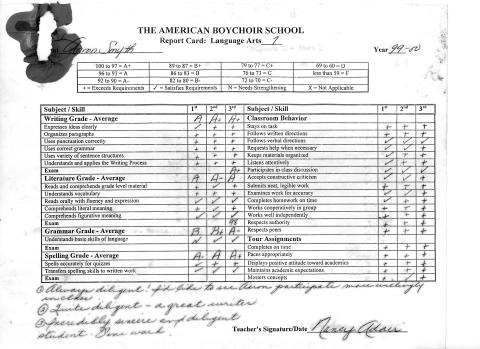 THE AMERICAN BOYCHOIR SCHOOL
Report Card: Language Arts 7
Aaron Smyth Year 99-00
100 to 97 = A+ 89 to 87 = B+ 79 to 77 = C+ 69 to 60 = D
96 to 93 = A 86 to 83 = B 76 to 73 = C less than 59 = F
92 to 90 = A- 82 to 80 = B- 72 to 70 = C-
+ = Exceeds Requirements ✓ = Satisfies Requirements N = Needs Strengthening X = Not Applicable
Subject / Skill 1st 2nd 3rd Subject / Skill 1st 2nd 3rd
Writing Grade - Average A A+ A+ Classroom Behavior
Expresses ideas clearly Stays on task
Organizes paragraphs Follows written directions
Uses punctuation correctly Follows verbal directions
Uses correct grammar Requests help when necessary
Uses variety of sentence structures Keeps materials organized
Understands and applies the Writing Process Listens attentively
Exam A+ Participates in class discussion
Literature Grade - Average A A- A Accepts constructive criticism
Reads and comprehends grade level material Submits neat, legible work
Understands vocabulary Examines work for accuracy
Reads orally with fluency and expression Completes homework on time
Comprehends literal meaning Works cooperatively in group
Comprehends figurative meaning Works well independently
Exam 98 Respects authority
Grammar Grade - Average B B+ A+ Respects peers
Understands basic skills of language Tour Assignments
Exam Completes on time
Spelling Grade - Average A- A A+ Paces appropriately
Spells accurately for quizzes Displays positive attitude toward academics
Transfers spelling skills to written work Maintains academic expectations
Exam Masters concepts
① Always diligent! I'd like to see Aaron participate more willingly
in class
② Quite diligent - a great writer
③ Incredibly sincere and diligent
student - Fine work
Teacher's Signature/Date Nancy Adair